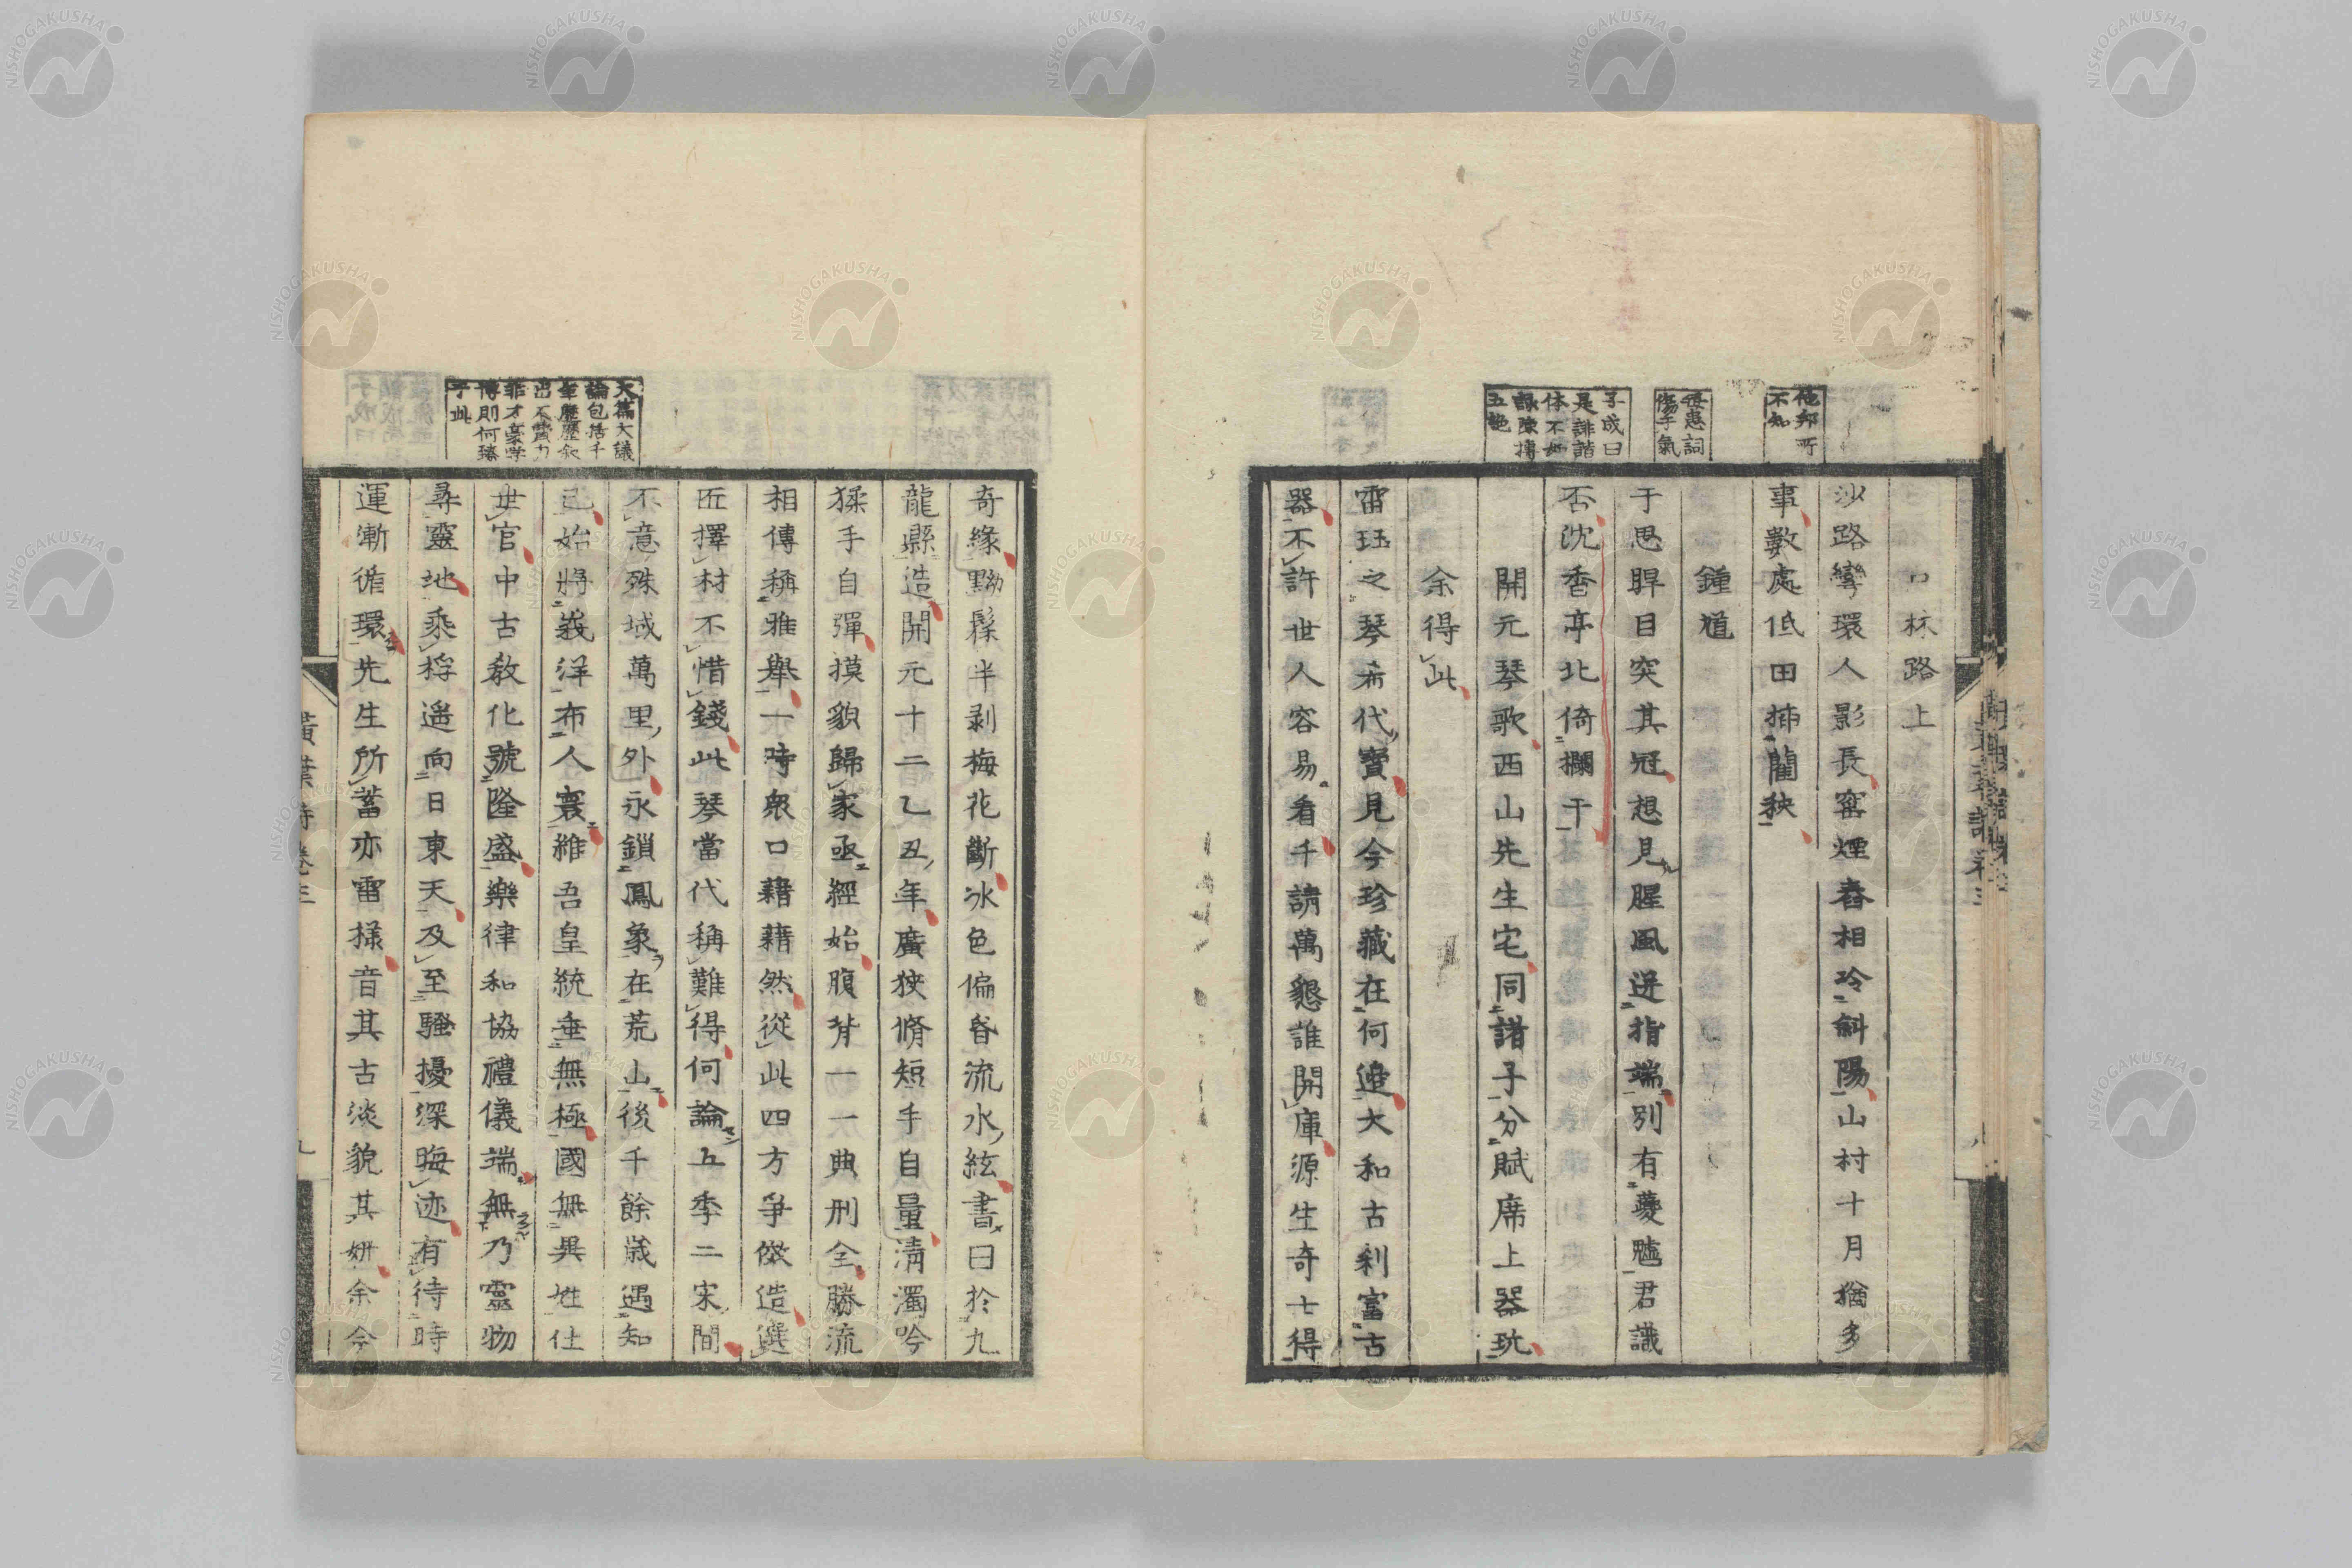 林路上
沙路彎環人影長窑煙舂相冷斜陽山村十月猶多
事數處低田揷藺秧
鍾馗
于思睅目突其冠想見腥風迸指端別有夔魖君識
否沈香亭北倚欄干
開元琴歌西山先生宅同諸子分賦席上器玩
余得此
雷珏之琴希代寶見今珍藏在何邊大和古刹富古
器不許世人容易看千請萬懇誰開庫源生奇士得
他邦所
不知
每患詞
傷手氣
子成曰
是誹諧
体不如
録陳摶
五絶
奇緣黝髹半剥梅花斷冰色偏昏流水絃書曰於九
龍縣造開元十二乙丑年廣狹脩短手自量淸濁吟
猱手自彈摸貌歸家亟經始腹背一一典刑全勝流
相傳稱雅舉一時衆口藉藉然從此四方爭倣造選
匠擇材不惜錢此琴當代稱難得何論五季二宋間
不意殊域萬里外永鎖鳳象在荒山後千餘歳遇知
己始將義洋布人寰維吾皇統垂無極國無異姓仕
世官中古敎化號隆盛樂律和協禮儀端無乃靈物
尋靈地乘桴遥向日東天及至騷擾深晦迹有待時
運漸循環先生所蓄亦雷樣音其古淡貌其姸余今
大篇大議
論包括千
年歷歷叙
出不費力
非才豪学
博則何臻
于此
黃葉詩卷三
九